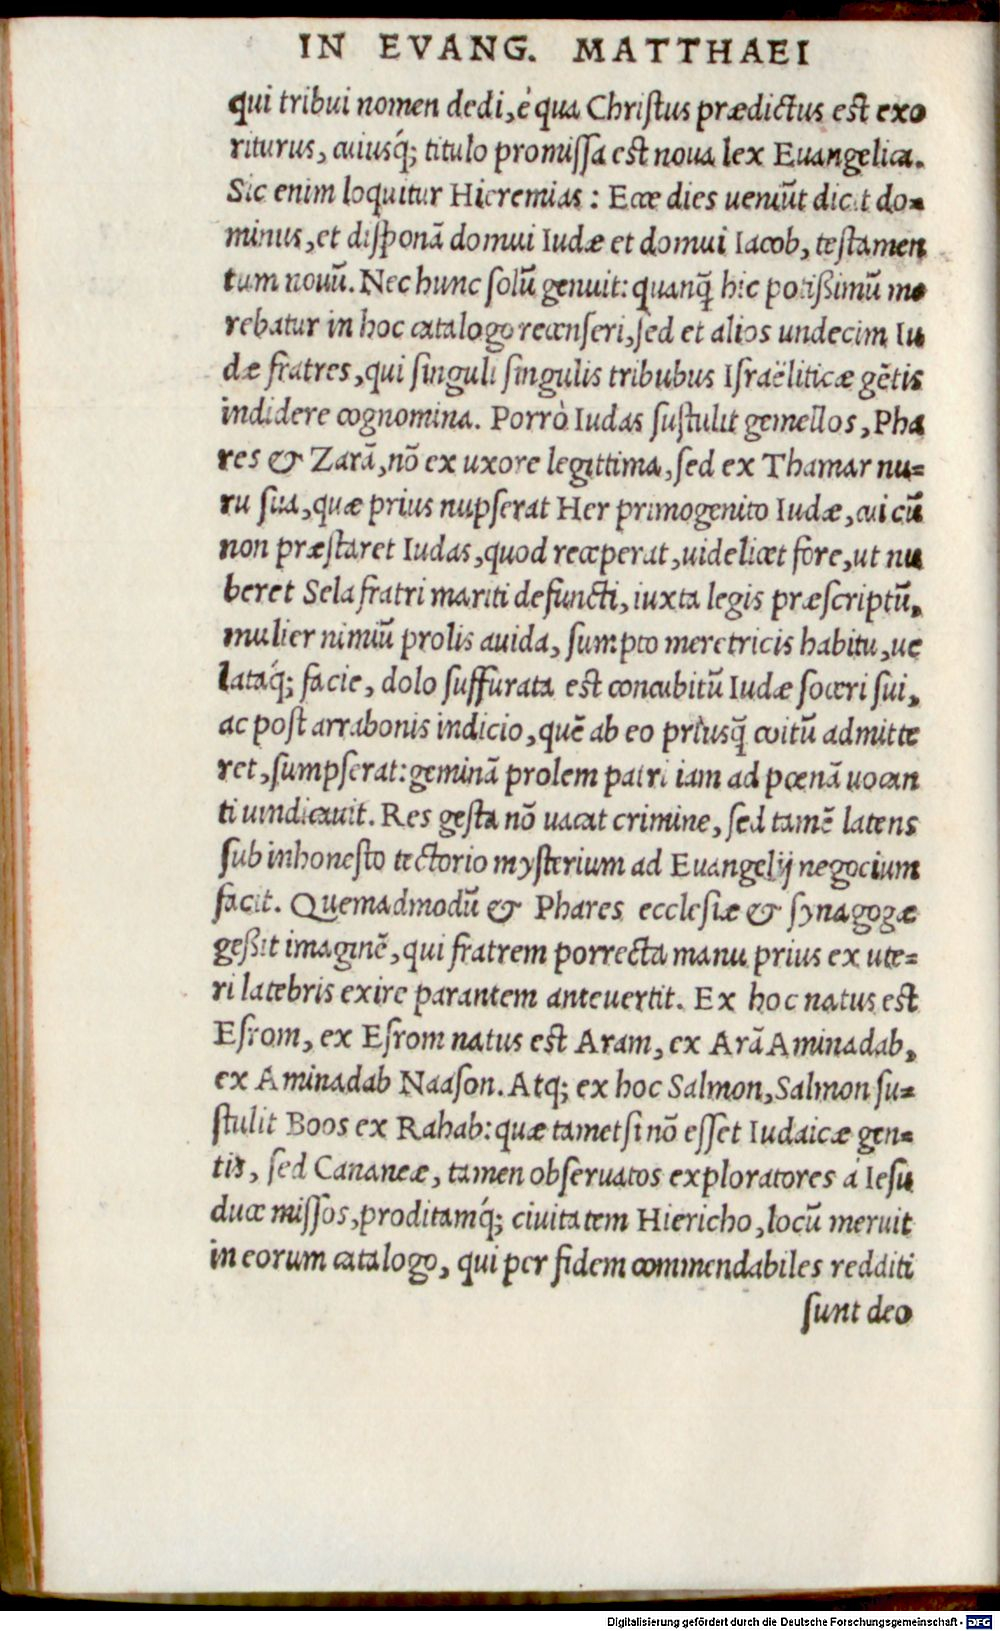 IN EVANG. MATTHAEI
qui tribui nomen dedi, è qua Christus prædictus est exo
riturus, cuiusq́; titulo promissa est noua lex Euangelica.
Sic enim loquitur Hieremias: Ecce dies ueniũt dicit do=
minus, et disponā domui Iudæ et domui Iacob, testamen
tum nouũ. Nec hunc solũ genuit: quanq̃ hic potißimũ me
rebatur in hoc catalogo recenseri, sed et alios undecim Iu
dæ fratres, qui singuli singulis tribubus Israëliticæ gētis
indidere cognomina. Porrò Iudas sustulit gemellos, Pha
res & Zarā, nō ex uxore legittima, sed ex Thamar nu=
ru sua, quæ prius nupserat Her primogenito Iudæ, cui cũ
non præstaret Iudas, quod receperat, uidelicet fore, ut nu
beret Sela fratri mariti defuncti, iuxta legis præscriptũ,
mulier nimiũ prolis auida, sumpto meretricis habitu, ue
lataq́; facie, dolo suffurata est concubitũ Iudæ soceri sui,
ac post arrabonis indicio, quē ab eo priusq̃ coitũ admitte
ret, sumpserat: geminā prolem patri iam ad pœnā uocan
ti uindicauit. Res gesta nō uacat crimine, sed tamē latens
sub inhonesto tectorio mysterium ad Euangelij negocium
facit. Quemadmodũ & Phares ecclesiæ & synagogæ
geßit imaginē, qui fratrem porrecta manu prius ex ute=
ri latebris exire parantem anteuertit. Ex hoc natus est
Esrom, ex Esrom natus est Aram, ex Arā Aminadab,
ex Aminadab Naason. Atq; ex hoc Salmon, Salmon su=
stulit Boos ex Rahab: quæ tametsi nō esset Iudaicæ gen=
tis, sed Cananeæ, tamen obseruatos exploratores á Iesu
duce missos, proditamq́; ciuitatem Hiericho, locũ meruit
in eorum catalogo, qui per fidem commendabiles redditi
sunt deo
Digitalisierung gefördert durch die Deutsche Forschungsgemeinschaft - DFG